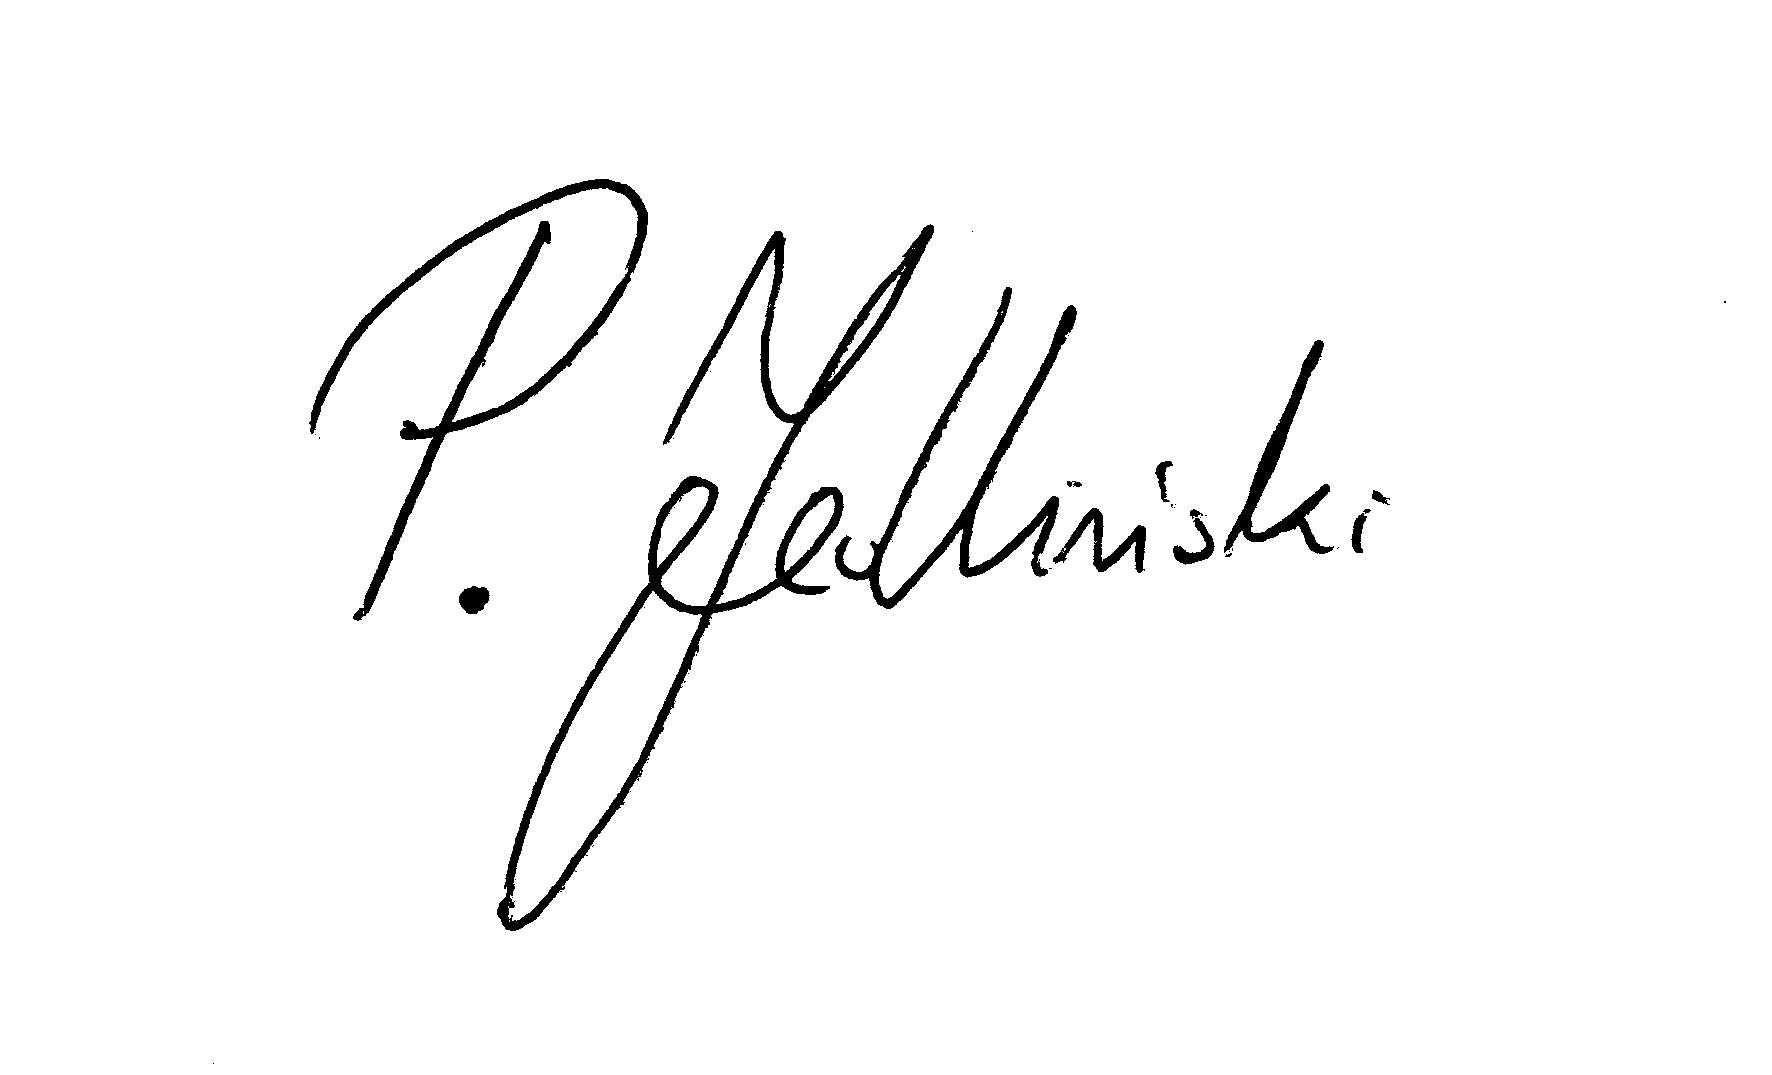 P. Jedliński